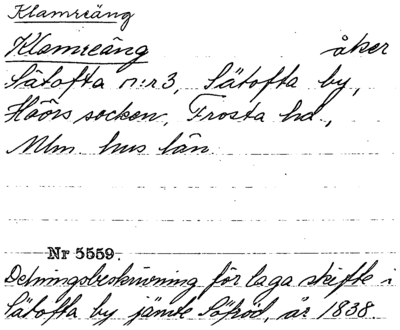 Klamreäng
Klamreäng åker
Sätofta n:r 3, Sätofta by,
Höörs socken, Frosta hd.,
Mlm. hus län
Nr 5559.
Delningsbeskrivning för laga skifte i
Sätofta by jämte Säröd, år 1838.